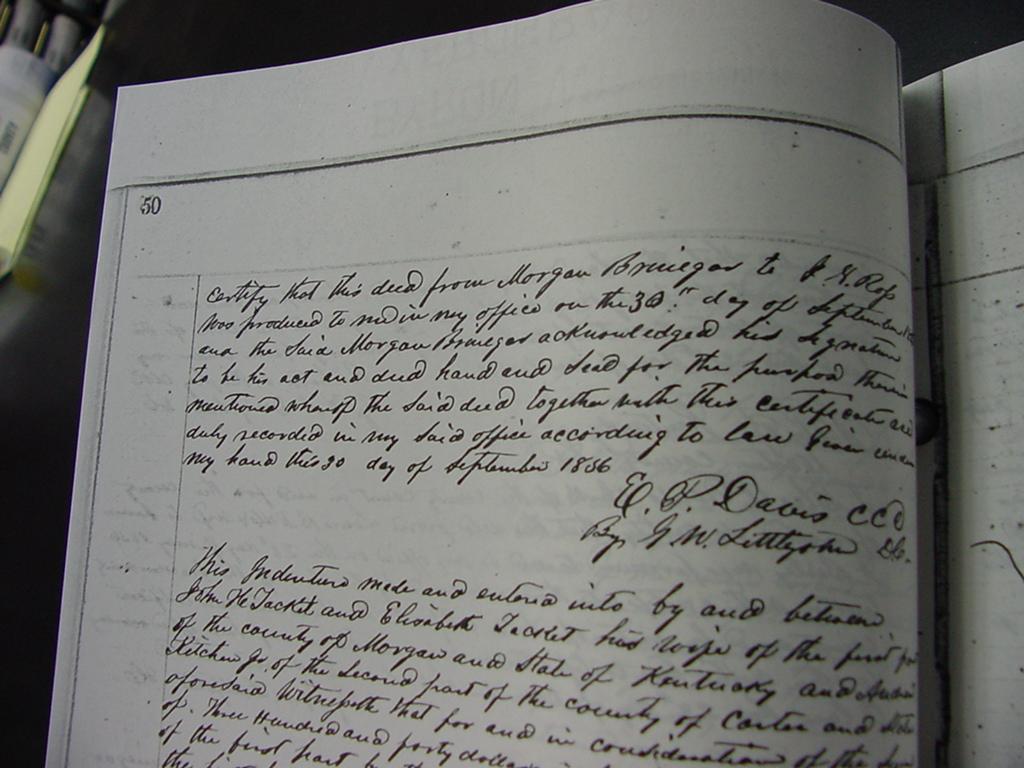 50
certify that this deed from Morgan Bruiegar to J. G. Ross
was produced to me in my office on the 30th day of September
and the said Morgan Bruiegar acknowledged his signature
to be his act and deed hand and seal for the purpose therein
mentioned whereof the said deed together with this certificate are
duly recorded in my said office according to law Given under
my hand this 30 day of September 1856
E. P. Davis CCC
By G. W. Littlejohn D.C.
This Indenture made and entered into by and between
John H Tacket and Elisabeth Tacket his wife of the first part
of the county of Morgan and State of Kentucky and
Kitchen Jr. of the second part of the county of Carter and State
aforesaid Witnesseth that for and in consideration of the sum
of Three Hundred and forty dollars
of the first part